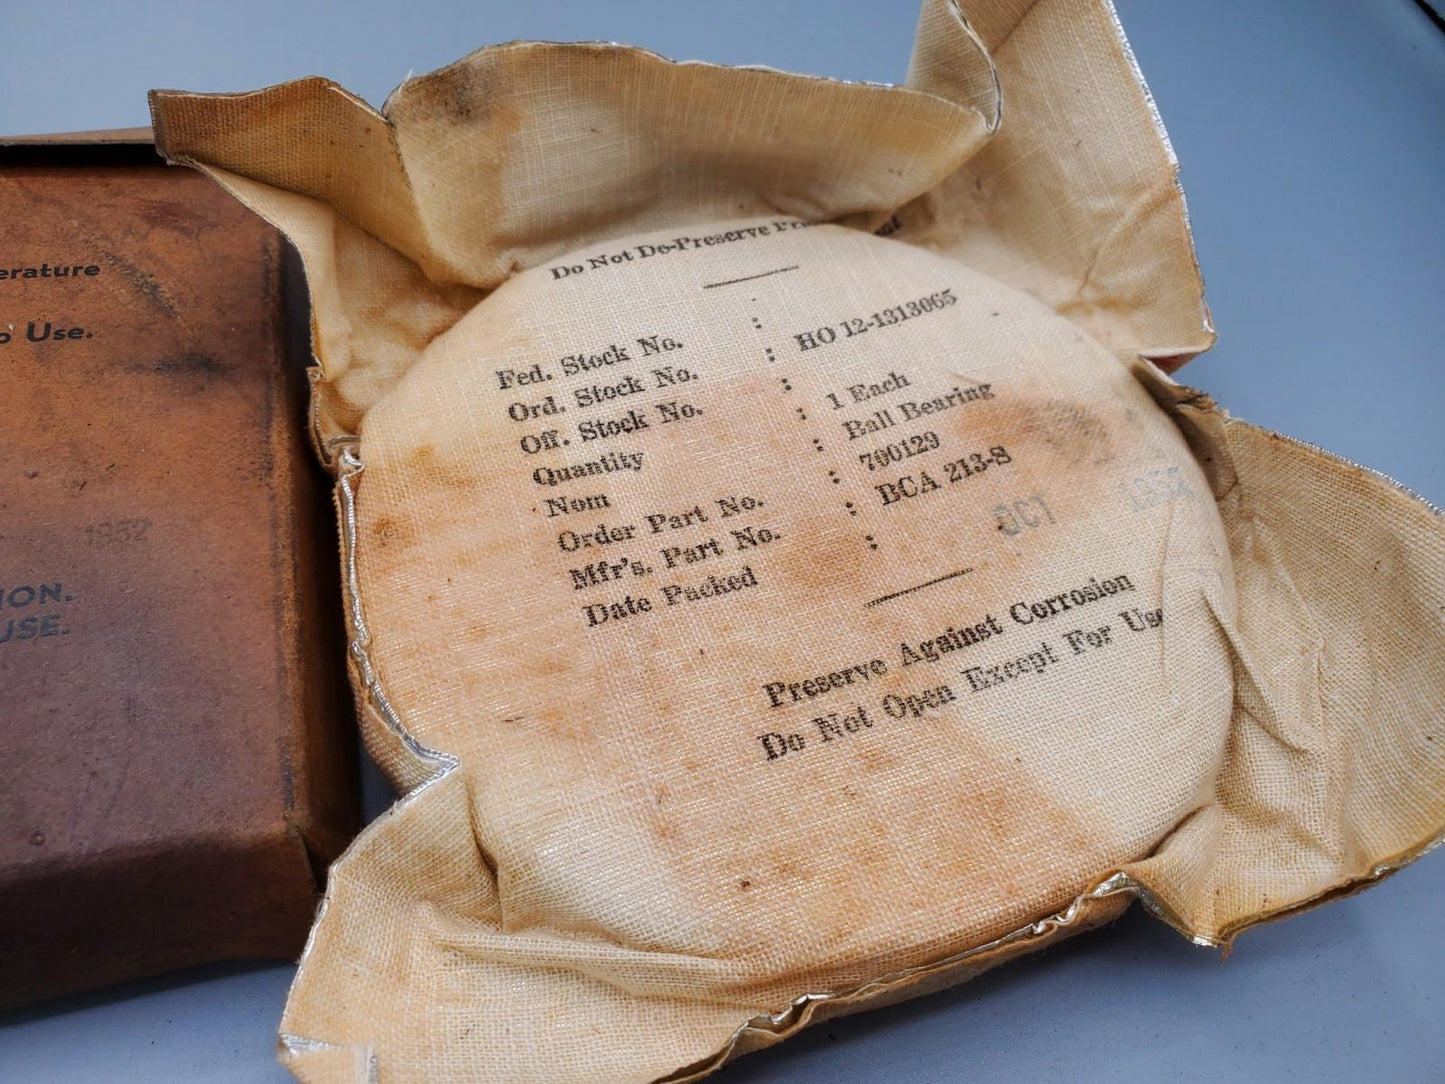 erature
o Use.
1952
ION.
USE.
Do Not De-Preserve
Fed. Stock No. :
Ord. Stock No. : HO 12-1313065
Off. Stock No. :
Quantity : 1 Each
Nom : Ball Bearing
Order Part No. : 700129
Mfr's. Part No. : BCA 213-S
Date Packed : OCT 1952
Preserve Against Corrosion
Do Not Open Except For Use